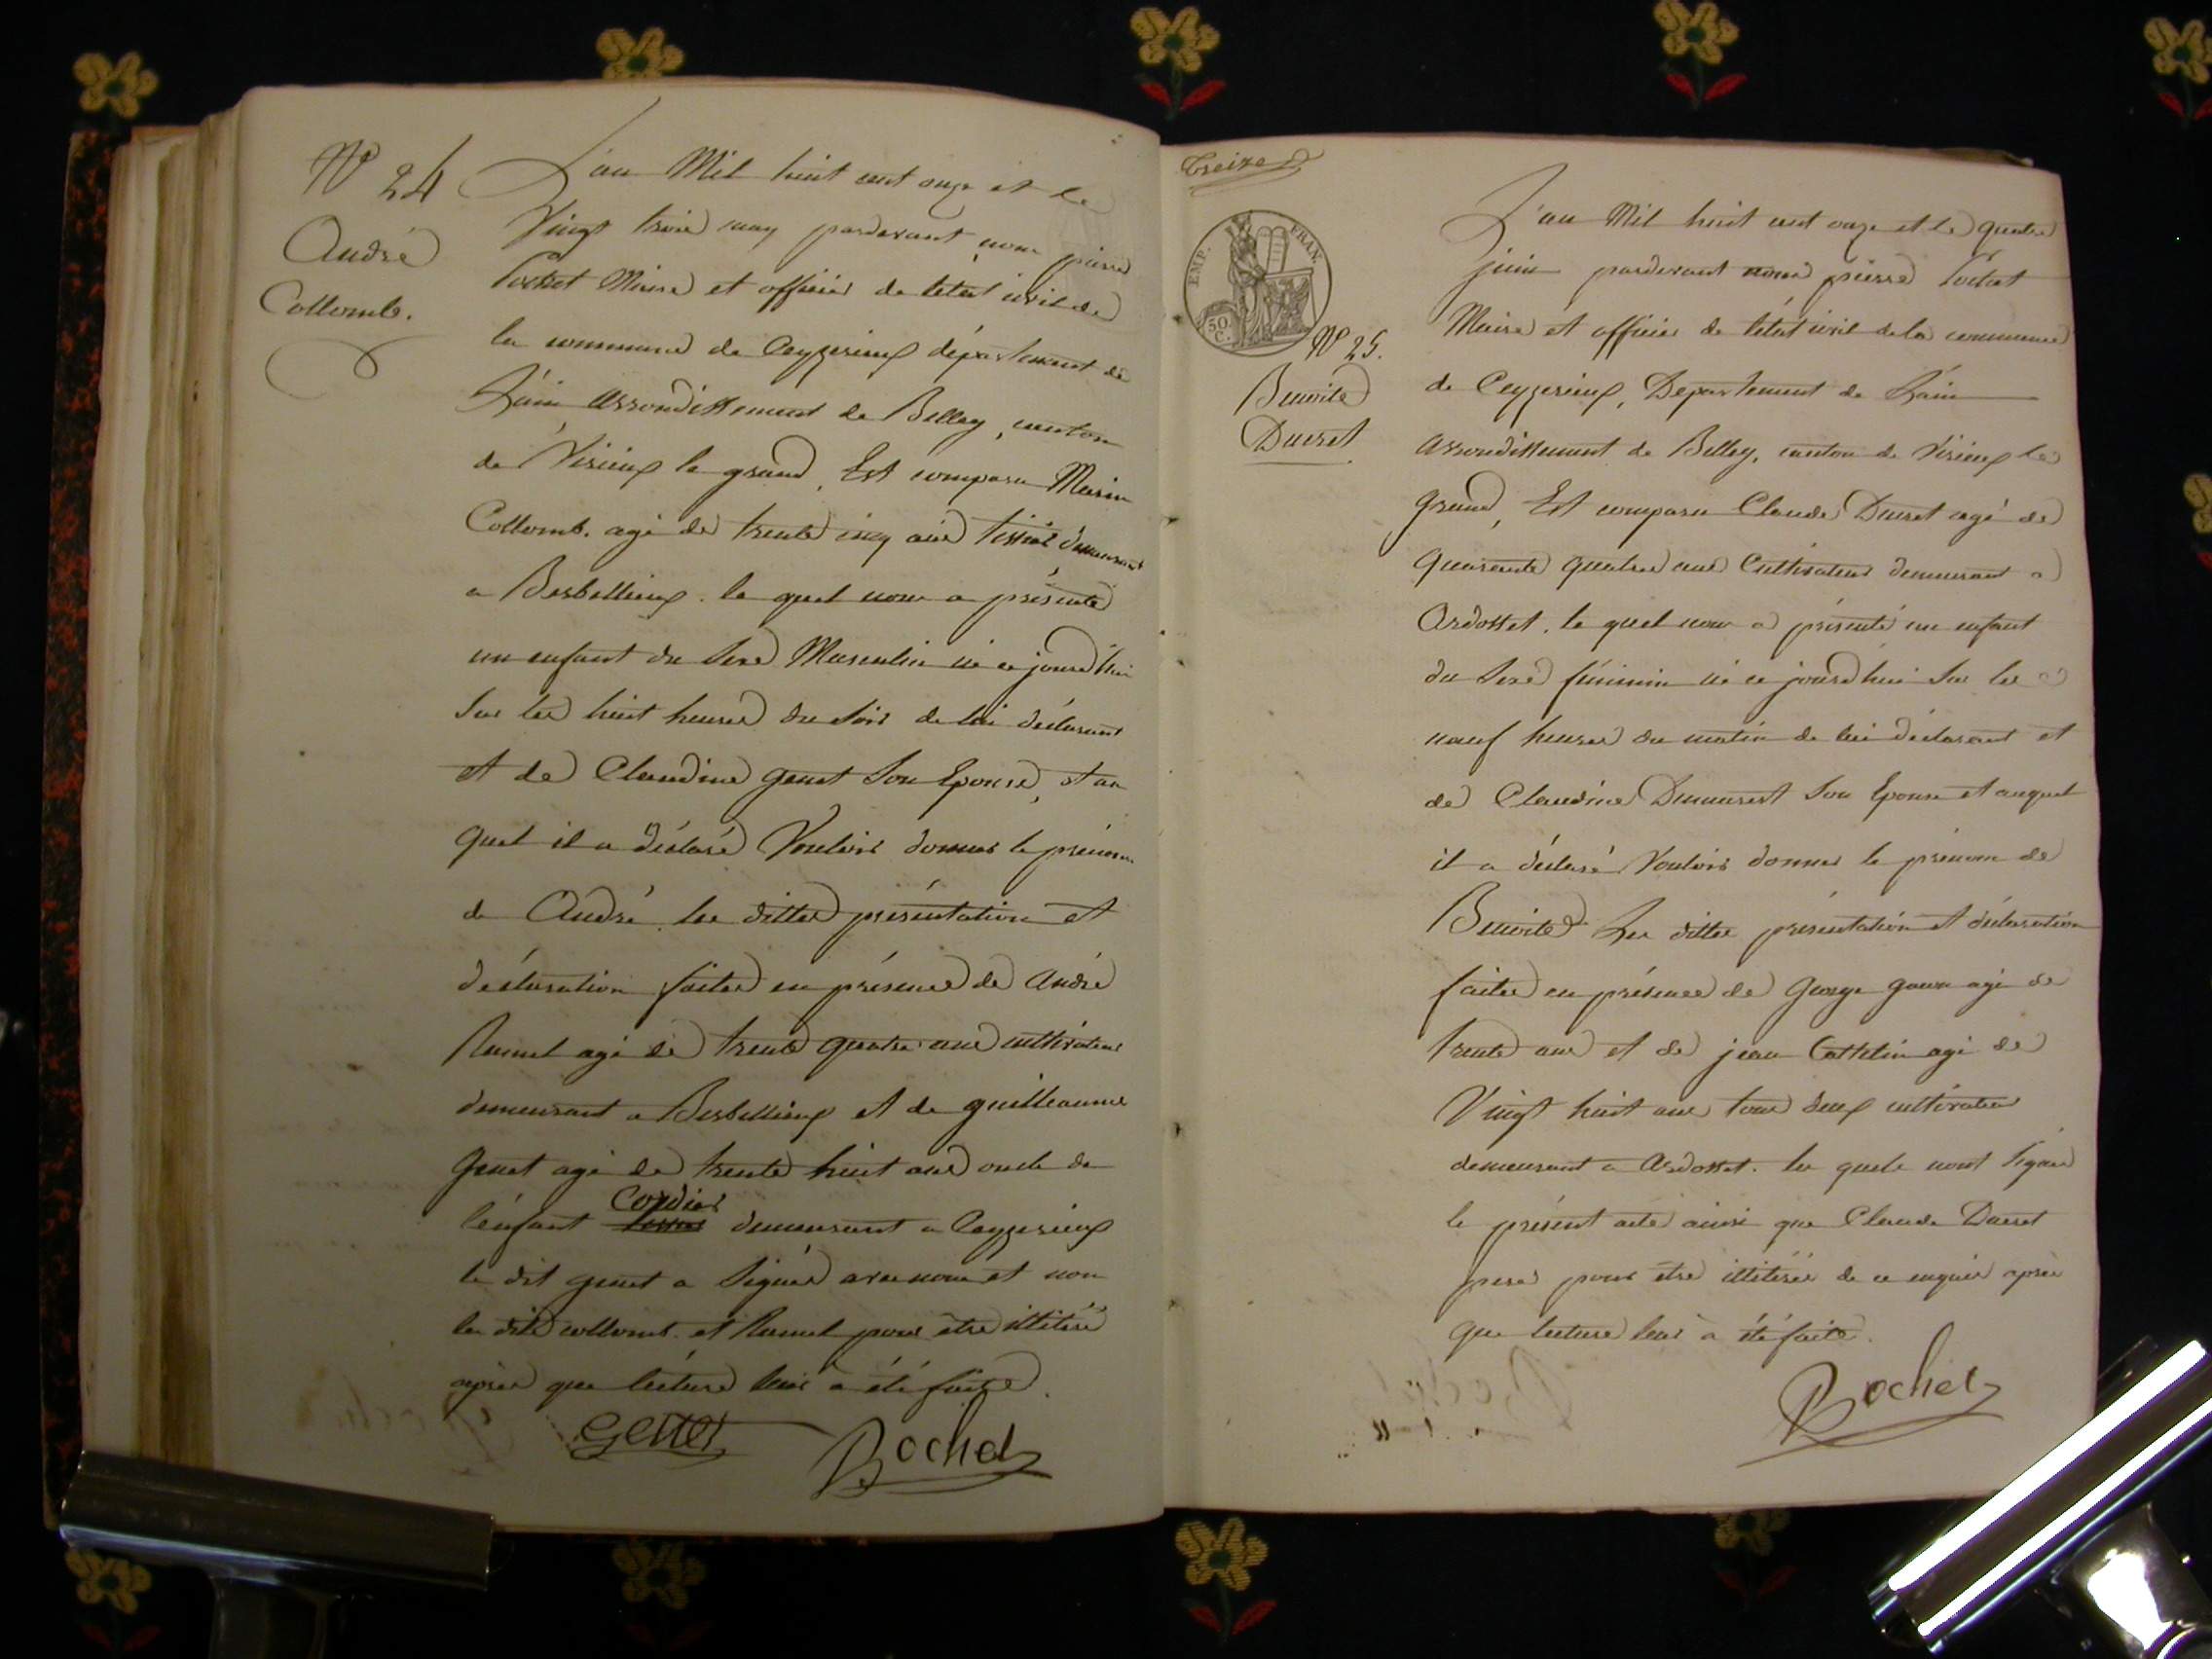 N° 24
André
Collomb.
L'an Mil huit cent onze et le
Vingt trois may pardevant nous pierre
Rochet Maire et officier de létat civil de
la commune de Ceyzerieux département de
L'ain, arrondissement de Belley, canton
de Virieux le grand, Est comparu Marin
Collomb. agé de trente cinq ans tissier demeurant
a Berbellieux. le quel nous a présenté
un enfant du sexe Masculin né ce jourd'hui
sur les huit heures du soir de lui déclarant
et de Claudine genet son Epouse, et au
quel il a déclaré Vouloir donner le prénom
de André. les dittes présentation et
déclaration faites en présence de André
agé de trente quatre ans cultivateur
demeurant a Berbellieux et de guilleaume
genet agé de trente huit ans oncle de
l'enfant Cordier demeurant a Ceyzerieux
le dit genet a signé avec nous et non
les dits collomb. et pour être illitéré
après que lecture leur a été faite.
Genet Rochet
Treize
EMP. FRAN.
50. C.
N° 25.
Benoite
Ducret
L'an Mil huit cent onze et le quatre
juin pardevant nous pierre Rochet
Maire et officier de létat civil de la commune
de Ceyzerieux, Departement de Lain
arrondissement de Belley, canton de Virieux le
grand, Est comparu Claude Ducret agé de
quarante quatre ans Cultivateur demeurant a
Ardosset. le quel nous a présenté un enfant
du sexe féminin né ce jourd'hui sur les
neuf heures du matin de lui déclarant et
de Claudine son Epouse et auquel
il a déclaré Vouloir donner le prénom de
Benoite. Les dittes présentation et déclaration
faites en présence de George agé de
trente ans et de jean Cattelin agé de
Vingt huit ans tous deux cultivateurs
demeurant a Ardosset. les quels n'ont signé
le présent acte ainsi que Claude Ducret
pere pour être illitérés de ce enquis après
que lecture leur a été faite.
Rochet